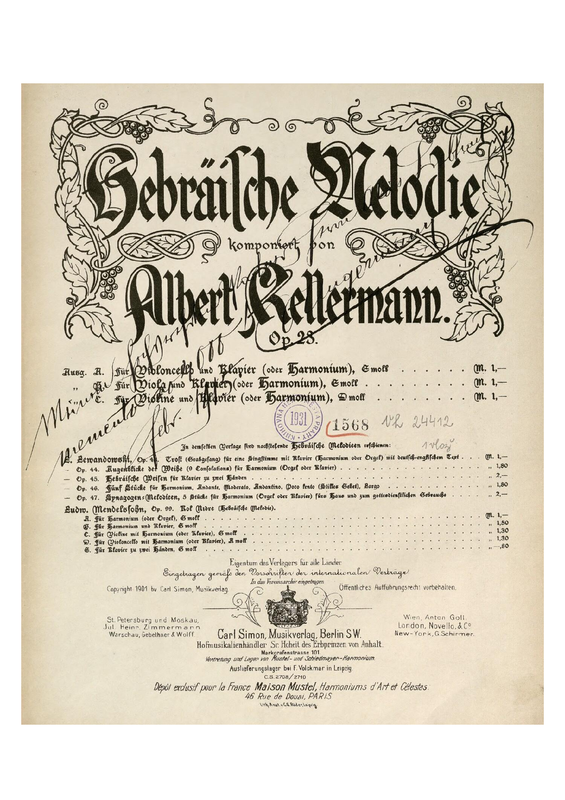 Hebräische Melodie
komponiert von
Albert Kellermann.
Op. 23.
Ausg. A. Für Violoncello und Klavier (oder Harmonium), G moll . . . . . . . . M. 1,—
„ B. Für Viola und Klavier (oder Harmonium), G moll . . . . . . . . M. 1,—
„ C. Für Violine und Klavier (oder Harmonium), D moll . . . . . . . . M. 1,—
1931
1568
In demselben Verlage sind nachstehende Hebräische Melodieen erschienen:
L. Lewandowski, Trost (Grabgesang) für eine Singstimme mit Klavier (Harmonium oder Orgel) mit deutsch-englischem Text . . M. 1,—
— Op. 44. Augenblicke der Weihe (9 Consolations) für Harmonium (Orgel oder Klavier) . . . „ 1,80
— Op. 45. Hebräische Weisen für Klavier zu zwei Händen . . . „ 2,—
— Op. 46. Fünf Stücke für Harmonium, Andante, Moderato, Andantino, Poco lento (Stilles Gebet), Largo . . . „ 1,80
— Op. 47. Synagogen-Melodieen, 5 Stücke für Harmonium (Orgel oder Klavier) fürs Haus und zum gottesdienstlichen Gebrauche . . . „ 2,—
Ludw. Mendelssohn, Op. 99. Kol Nidre (Hebräische Melodie).
A. Für Harmonium (oder Orgel), G moll . . . M. 1,—
B. Für Harmonium und Klavier, G moll . . . „ 1,50
C. Für Violine mit Harmonium (oder Klavier), G moll . . . „ 1,30
D. Für Violoncello mit Harmonium (oder Klavier), A moll . . . „ 1,30
E. Für Klavier zu zwei Händen, G moll . . . „ ,60
Eigentum des Verlegers für alle Länder
Eingetragen gemäß den Vorschriften der internationalen Verträge
In das Vereinsarchiv eingetragen.
Copyright 1901 by Carl Simon, Musikverlag. Öffentliches Aufführungsrecht vorbehalten.
St. Petersburg und Moskau, Wien, Anton Goll.
Jul. Heinr. Zimmermann. London, Novello, & Co
Warschau, Gebethner & Wolff New-York, G. Schirmer.
Carl Simon, Musikverlag, Berlin SW.
Hofmusikalienhändler Sr. Hoheit des Erbprinzen von Anhalt.
Markgrafenstrasse 101
Vertretung und Lager von Mustel- und Schiedmayer-Harmonium.
Auslieferungslager bei F. Volckmar in Leipzig.
C.S. 2708/2710
Dépôt exclusif pour la France Maison Mustel, Harmoniums d'Art et Célestes
46 Rue de Douai, PARIS